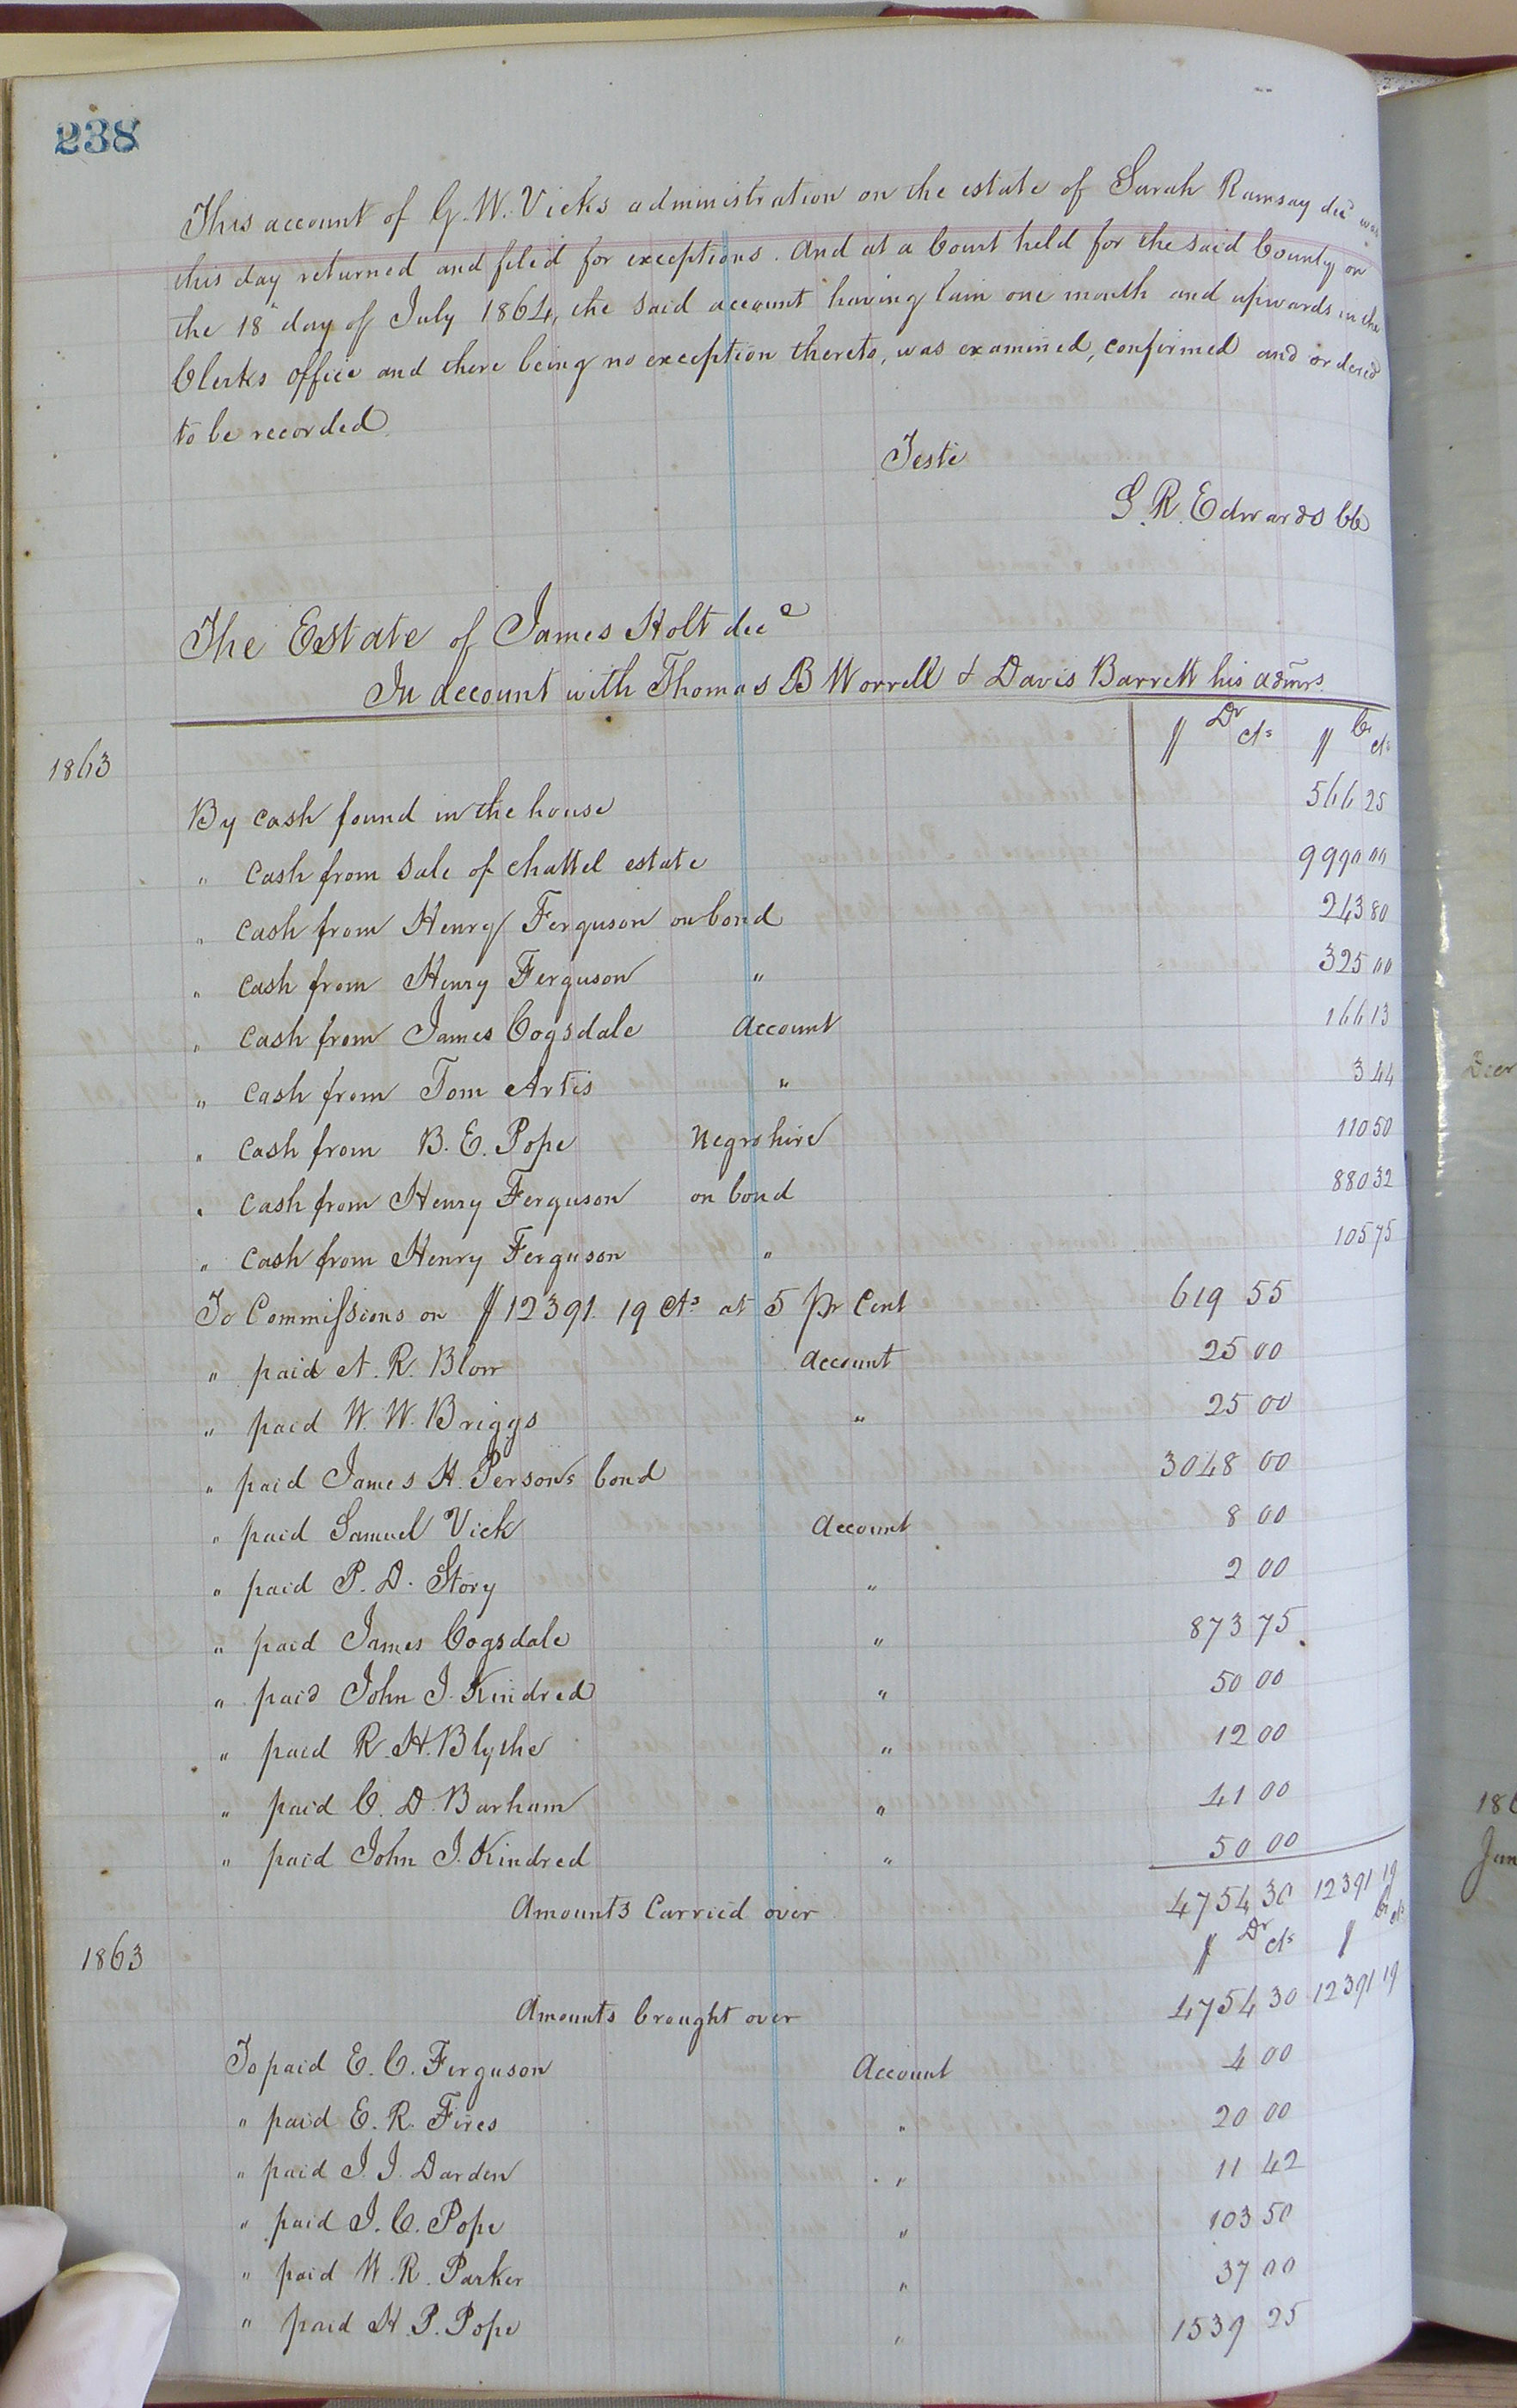 238
This account of G. W. Vicks administration on the estate of Sarah Ramsay decd was
this day returned and filed for exceptions. And at a Court held for the said County on
the 18th day of July 1864, the said account having lain one month and upwards in the
Clerks office and there being no exception thereto, was examined, confirmed and ordered
to be recorded
Teste
G. R. Edwards CC
The Estate of James Holt decd
In account with Thomas B Worrell & Davis Barrett his admrs.
$ Dr cts $ Cr cts
1863
By cash found in the house 566 25
" cash from sale of chattel estate 9990 00
" cash from Henry Ferguson on bond 243 80
" cash from Henry Ferguson " 325 00
" cash from James Cogsdale Account 166 13
" cash from Tom Artis " 3 44
" cash from B. E. Pope Negro hire 110 50
" cash from Henry Ferguson on bond 880 32
" cash from Henry Ferguson " 105 75
To Commissions on $12391. 19 cts at 5 pr Cent 619 55
" paid A. R. Blow Account 25 00
" paid W. W. Briggs " 25 00
" paid James H. Persons bond 3048 00
" paid Samuel Vick Account 8 00
" paid P. D. Story " 2 00
" paid James Cogsdale " 873 75
" paid John J. Kindred " 50 00
" paid R. H. Blythe " 12 00
" paid C. D. Barham " 41 00
" paid John J. Kindred " 50 00
Amounts Carried over 4754 30 12391 19
1863 $ Dr cts $ Cr cts
Amounts brought over 4754 30 12391 19
To paid E. C. Ferguson Account 4 00
" paid E. R. Fires " 20 00
" paid J. J. Darden " 11 42
" paid J. C. Pope " 103 50
" paid W. R. Parker " 37 00
" paid H. P. Pope " 1539 25
186
Jan